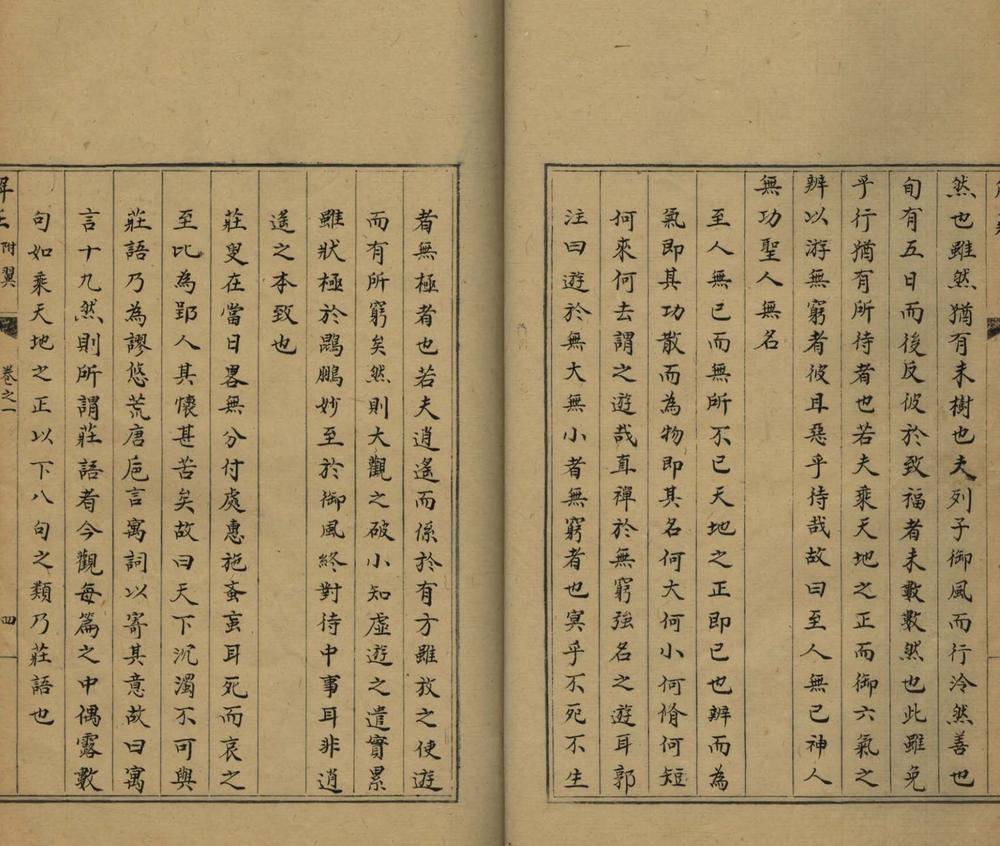 然也雖然猶有未樹也夫列子御風而行泠然善也
旬有五日而後反彼於致福者未數數然也此雖免
乎行猶有所待者也若夫乘天地之正而御六氣之
辨以游無窮者彼且惡乎待哉故曰至人無已神人
無功聖人無名
至人無已而無所不已天地之正即已也辨而為
氣即其功散而為物即其名何大何小何脩何短
何來何去謂之遊哉直禪於無窮強名之遊耳郭
注曰遊於無大無小者無窮者也冥乎不死不生
者無極者也若夫逍遙而係於有方雖放之使遊
而有所窮矣然則大觀之破小知虛遊之遣實累
雖狀極於鵾鵬妙至於御風終對待中事耳非逍
遙之本致也
莊叟在當日畧無分付處惠施蚉䖟耳死而哀之
至比為郢人其懷甚苦矣故曰天下沉濁不可與
莊語乃為謬悠荒唐巵言寓詞以寄其意故曰寓
言十九然則所謂莊語者今觀每篇之中偶露數
句如乘天地之正以下八句之類乃莊語也
附翼 卷之一 四